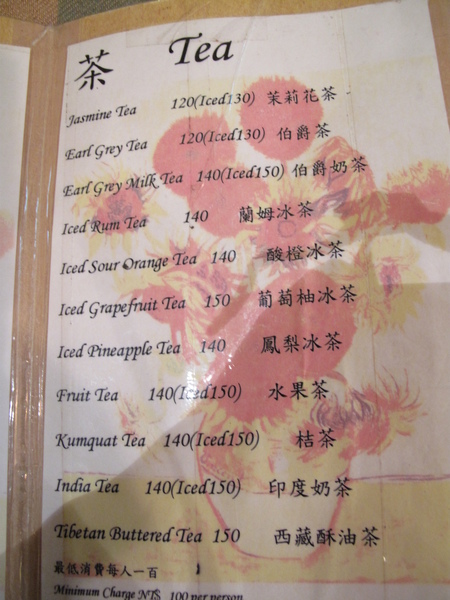 茶 Tea
Jasmine Tea 120(Iced130) 茉莉花茶
Earl Grey Tea 120(Iced130) 伯爵茶
Earl Grey Milk Tea 140(Iced150) 伯爵奶茶
Iced Rum Tea 140 蘭姆冰茶
Iced Sour Orange Tea 140 酸橙冰茶
Iced Grapefruit Tea 150 葡萄柚冰茶
Iced Pineapple Tea 140 鳳梨冰茶
Fruit Tea 140(Iced150) 水果茶
Kumquat Tea 140(Iced150) 桔茶
India Tea 140(Iced150) 印度奶茶
Tibetan Buttered Tea 150 西藏酥油茶
最低消費每人一百
Minimum Charge NT$ 100 per person